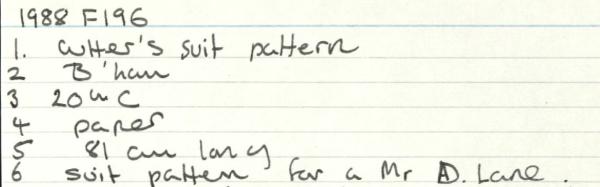 1988 F196
1. cutter's suit pattern
2 B'ham
3 20th C
4 paper
5 81 cm long
6 suit pattern for a Mr D. Lane.